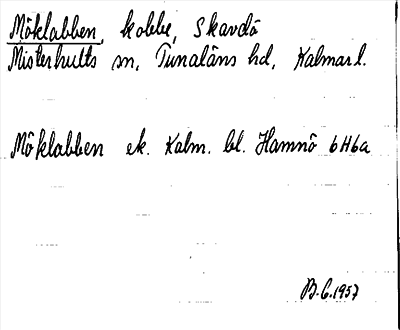 Möklabben, kobbe, Skavdö
Misterhults sn, Tunaläns hd, Kalmar l.
Möklabben ek. Kalm. bl. Hamnö 6H6a
B.G.1957